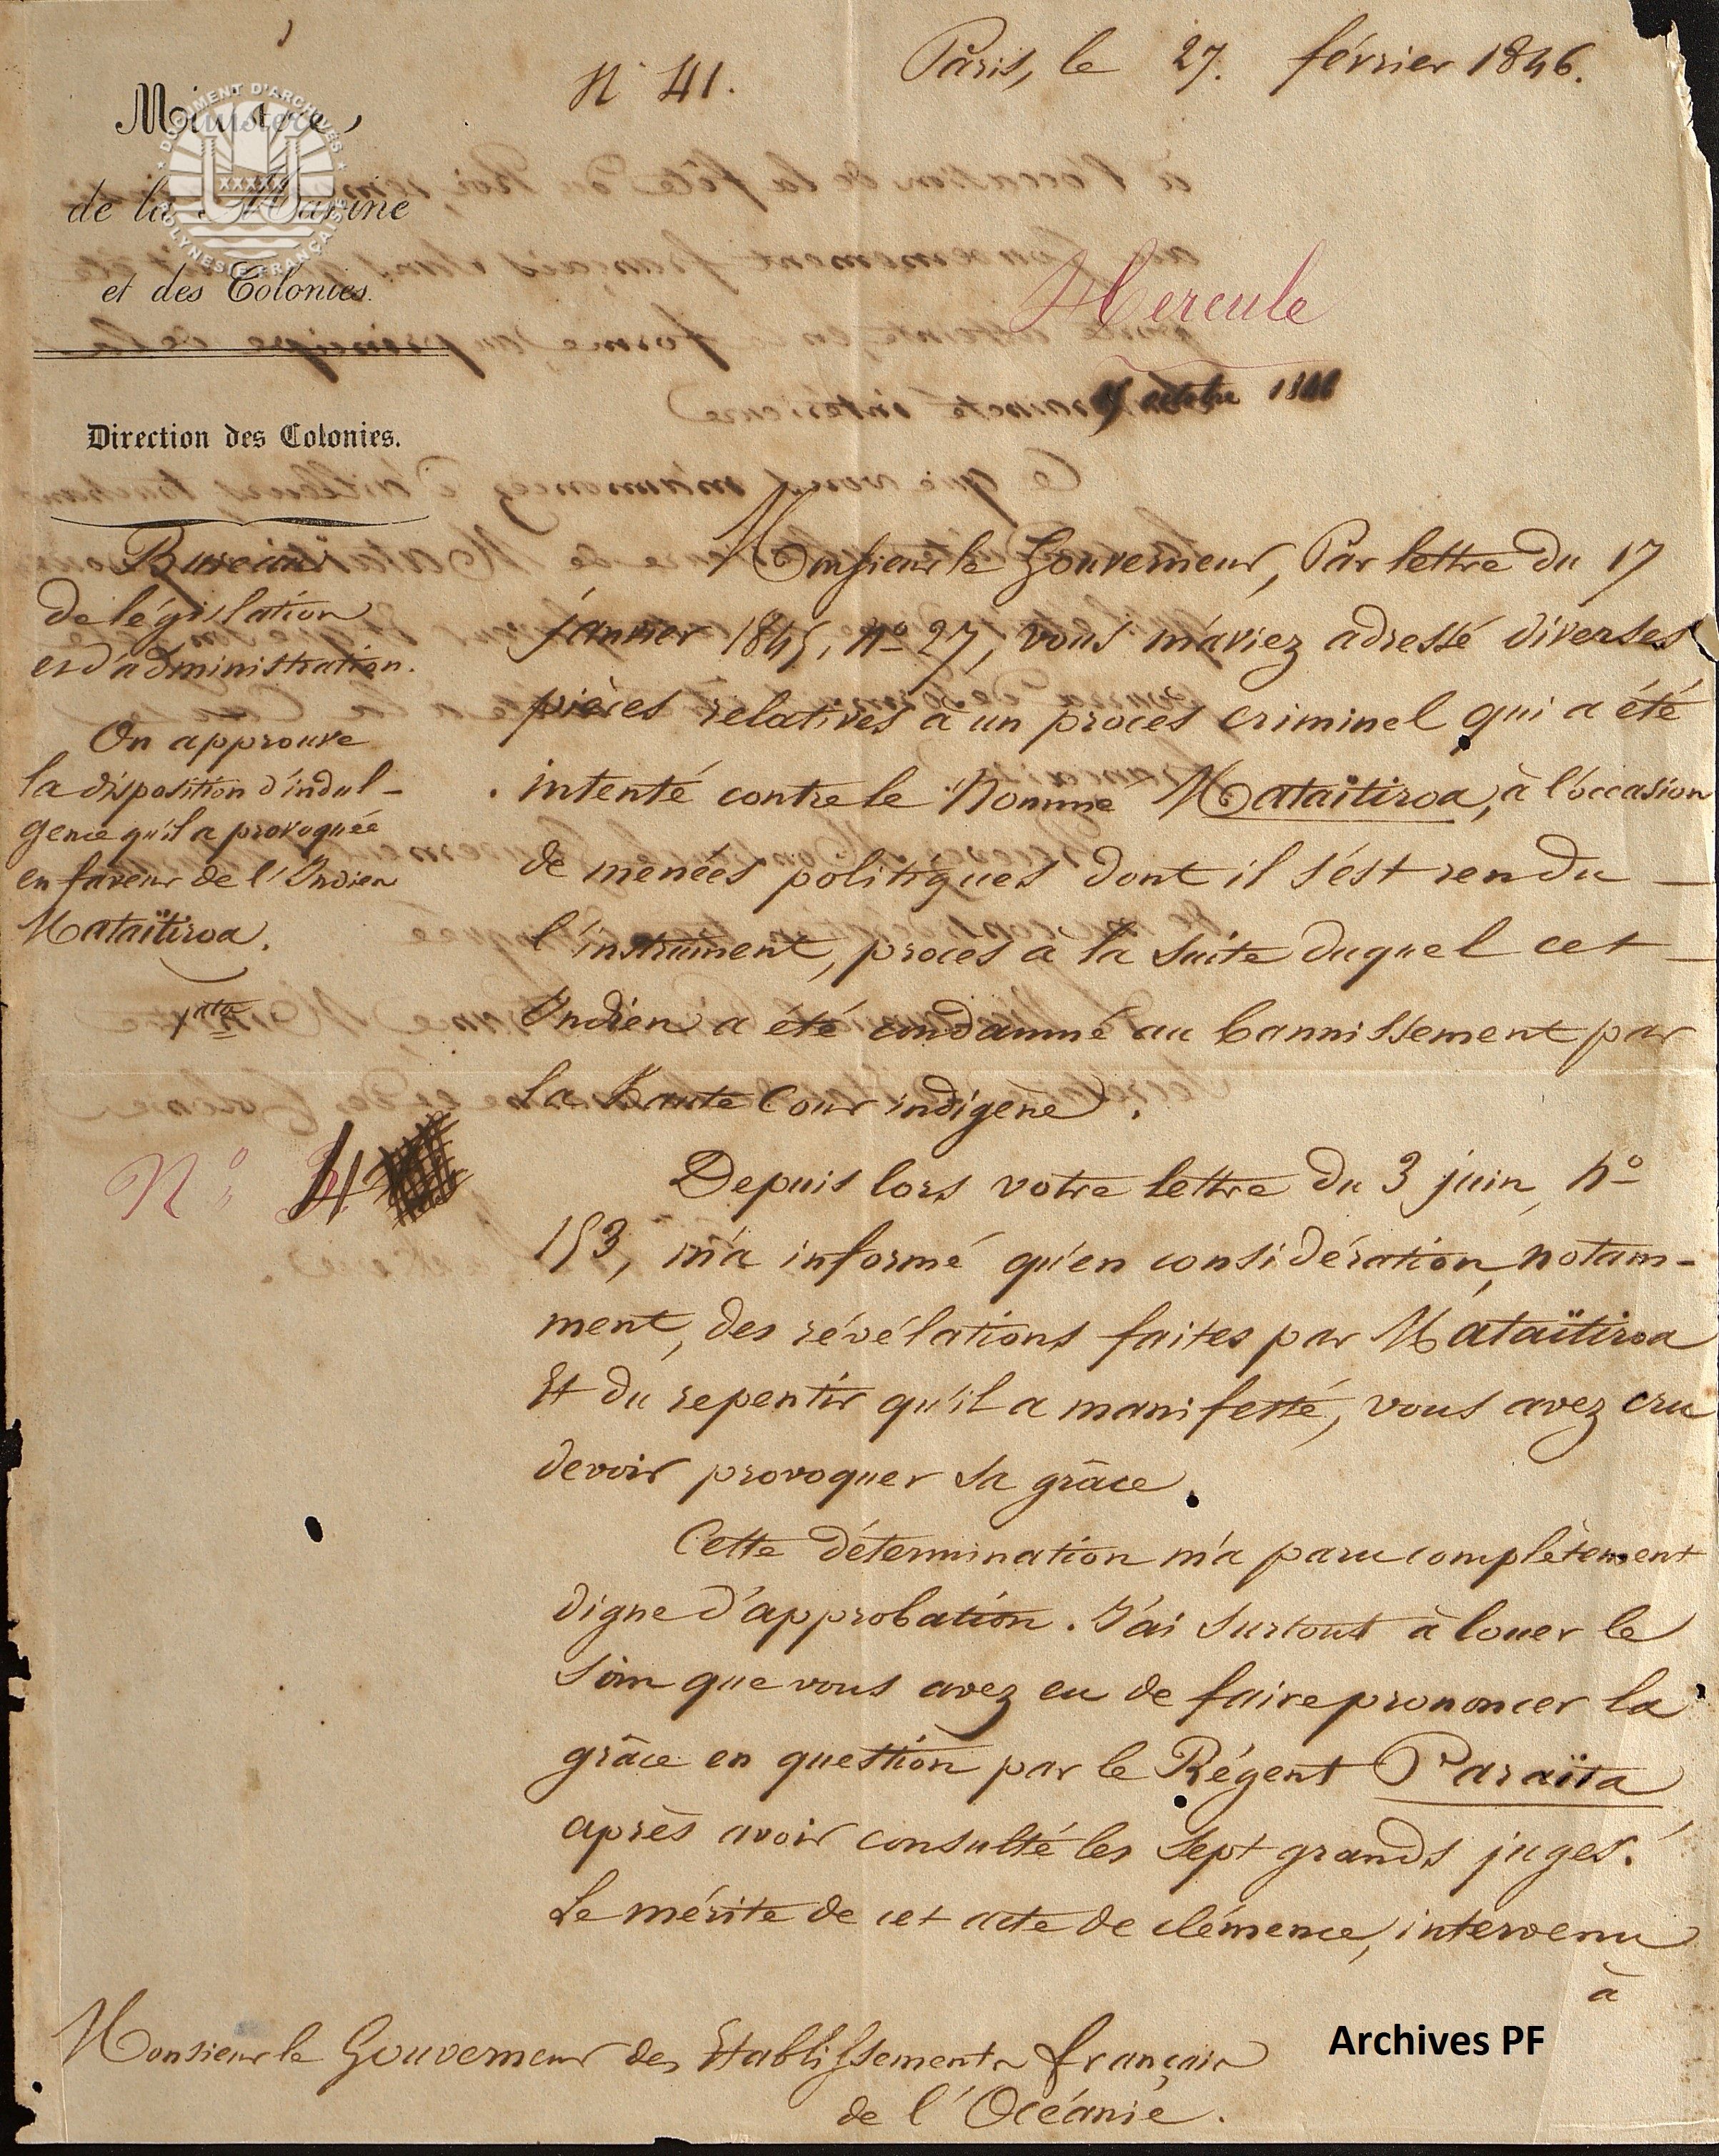 N° 41.
Paris, le 27. février 1846.
Ministère
de la Marine
et des Colonies.
DOCUMENT D'ARCHIVES
XXXXX
POLYNESIE FRANÇAISE
Hercule
octobre 1846
Direction des Colonies.
Bureau
de législation
et d'administration.
On approuve
la disposition d'indul-
gence qu'il a provoquée
en faveur de l'Indien
Mataïtiroa.
N°
Monsieur le Gouverneur, Par lettre du 17
janvier 1845, n° 27, vous m'aviez adressé diverses
pièces relatives à un procès criminel qui a été
intenté contre le Nommé Mataïtiroa, à l'occasion
de menées politiques dont il s'est rendu
l'instrument, procès à la suite duquel cet
Indien a été condamné au bannissement par
la haute Cour indigène.
Depuis lors votre lettre du 3 juin, n°
153, m'a informé qu'en considération, notam-
ment, des révélations faites par Mataïtiroa
Et du repentir qu'il a manifesté, vous avez cru
devoir provoquer sa grâce.
Cette détermination m'a paru complètement
digne d'approbation. J'ai surtout à louer le
soin que vous avez eu de faire prononcer la
grâce en question par le Régent Paraïta
après avoir consulté les sept grands juges.
Le mérite de cet acte de clémence, intervenu
à
Monsieur le Gouverneur des Etablissements français
de l'Océanie.
Archives PF